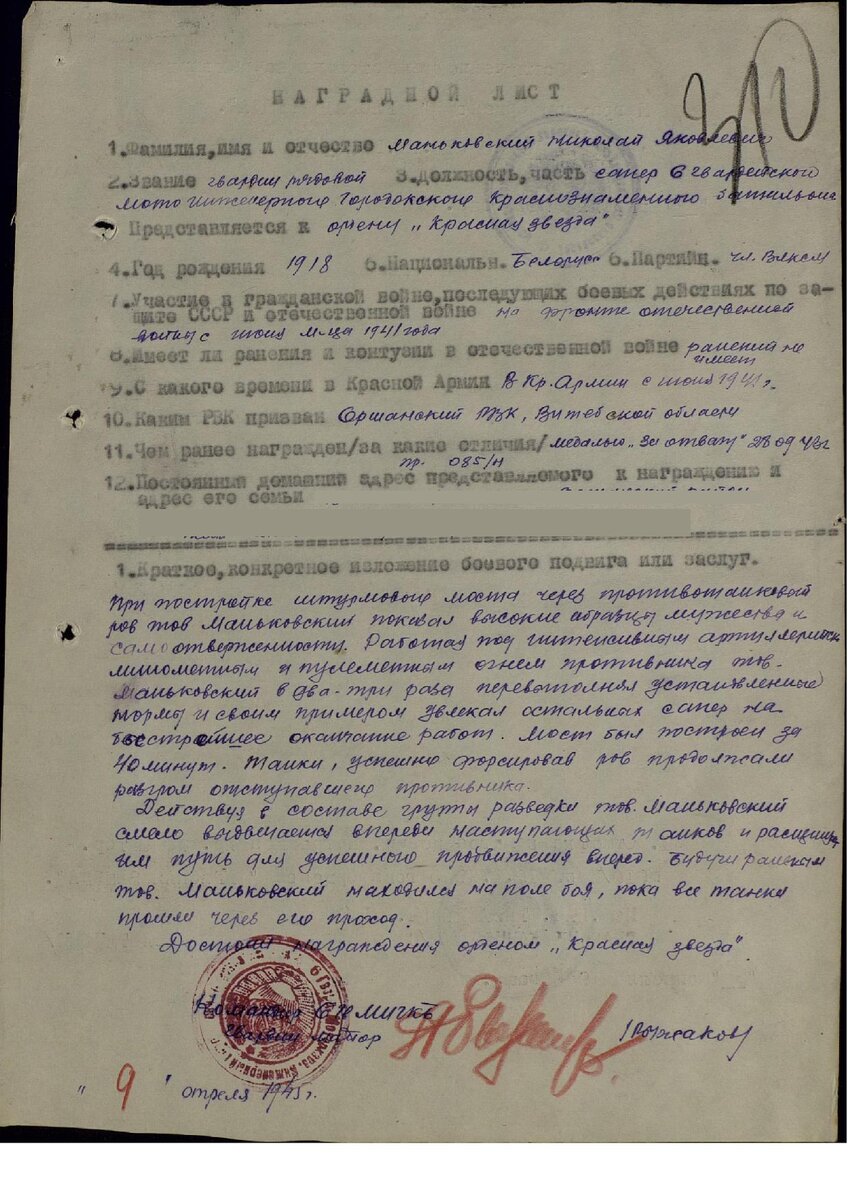 НАГРАДНОЙ ЛИСТ
1.Фамилия,имя и отчество Маньковский Николай Яковлевич
2.Звание гвардии рядовой 3.Должность,часть сапер 6 гвардейского
мото инженерного Городокского Краснознаменного батальона
Представляется к ордену „Красная звезда"
4.Год рождения 1918 5.Национальн. Белорус 6.Партийн. чл. ВЛКСМ
7.Участие в гражданской войне,последующих боевых действиях по за-
щите СССР и отечественной войне на фронте отечественной
войны с июня м-ца 1941 года
8.Имеет ли ранения и контузии в отечественной войне ранений не
имеет
9.С какого времени в Красной Армии В Кр.Армии с июня 1941 г.
10.Каким РВК призван Оршанский РВК, Витебской области
11.Чем ранее награжден/за какие отличия/ медалью „За отвагу" 28 09 43г
пр. 085/н
12.Постоянный домашний адрес представляемого к награждению и
адрес его семьи
1.Краткое,конкретное изложение боевого подвига или заслуг.
При постройке штурмового моста через противотанковый
ров тов Маньковский показал высокие образцы мужества и
самоотверженности. Работая под интенсивным артиллерийск
минометным и пулеметным огнем противника тов.
Маньковский в два-три раза перевыполнял установленные
нормы и своим примером увлекал остальных сапер на
быстрейшее окончание работ. Мост был построен за
40 минут. Танки, успешно форсировав ров продолжали
разгром отступавшего противника.
Действуя в составе группы разведки тов. Маньковский
смело выдвигается впереди наступающих танков и расчищает
им путь для успешного продвижения вперед. Будучи раненым
тов. Маньковский находился на поле боя, пока все танки
прошли через его проход.
Достоин награждения орденом „Красная звезда".
Командир 6 гв МИГКБ
Гвардии майор /Рыжаков/
" 9 " апреля 1945 г.